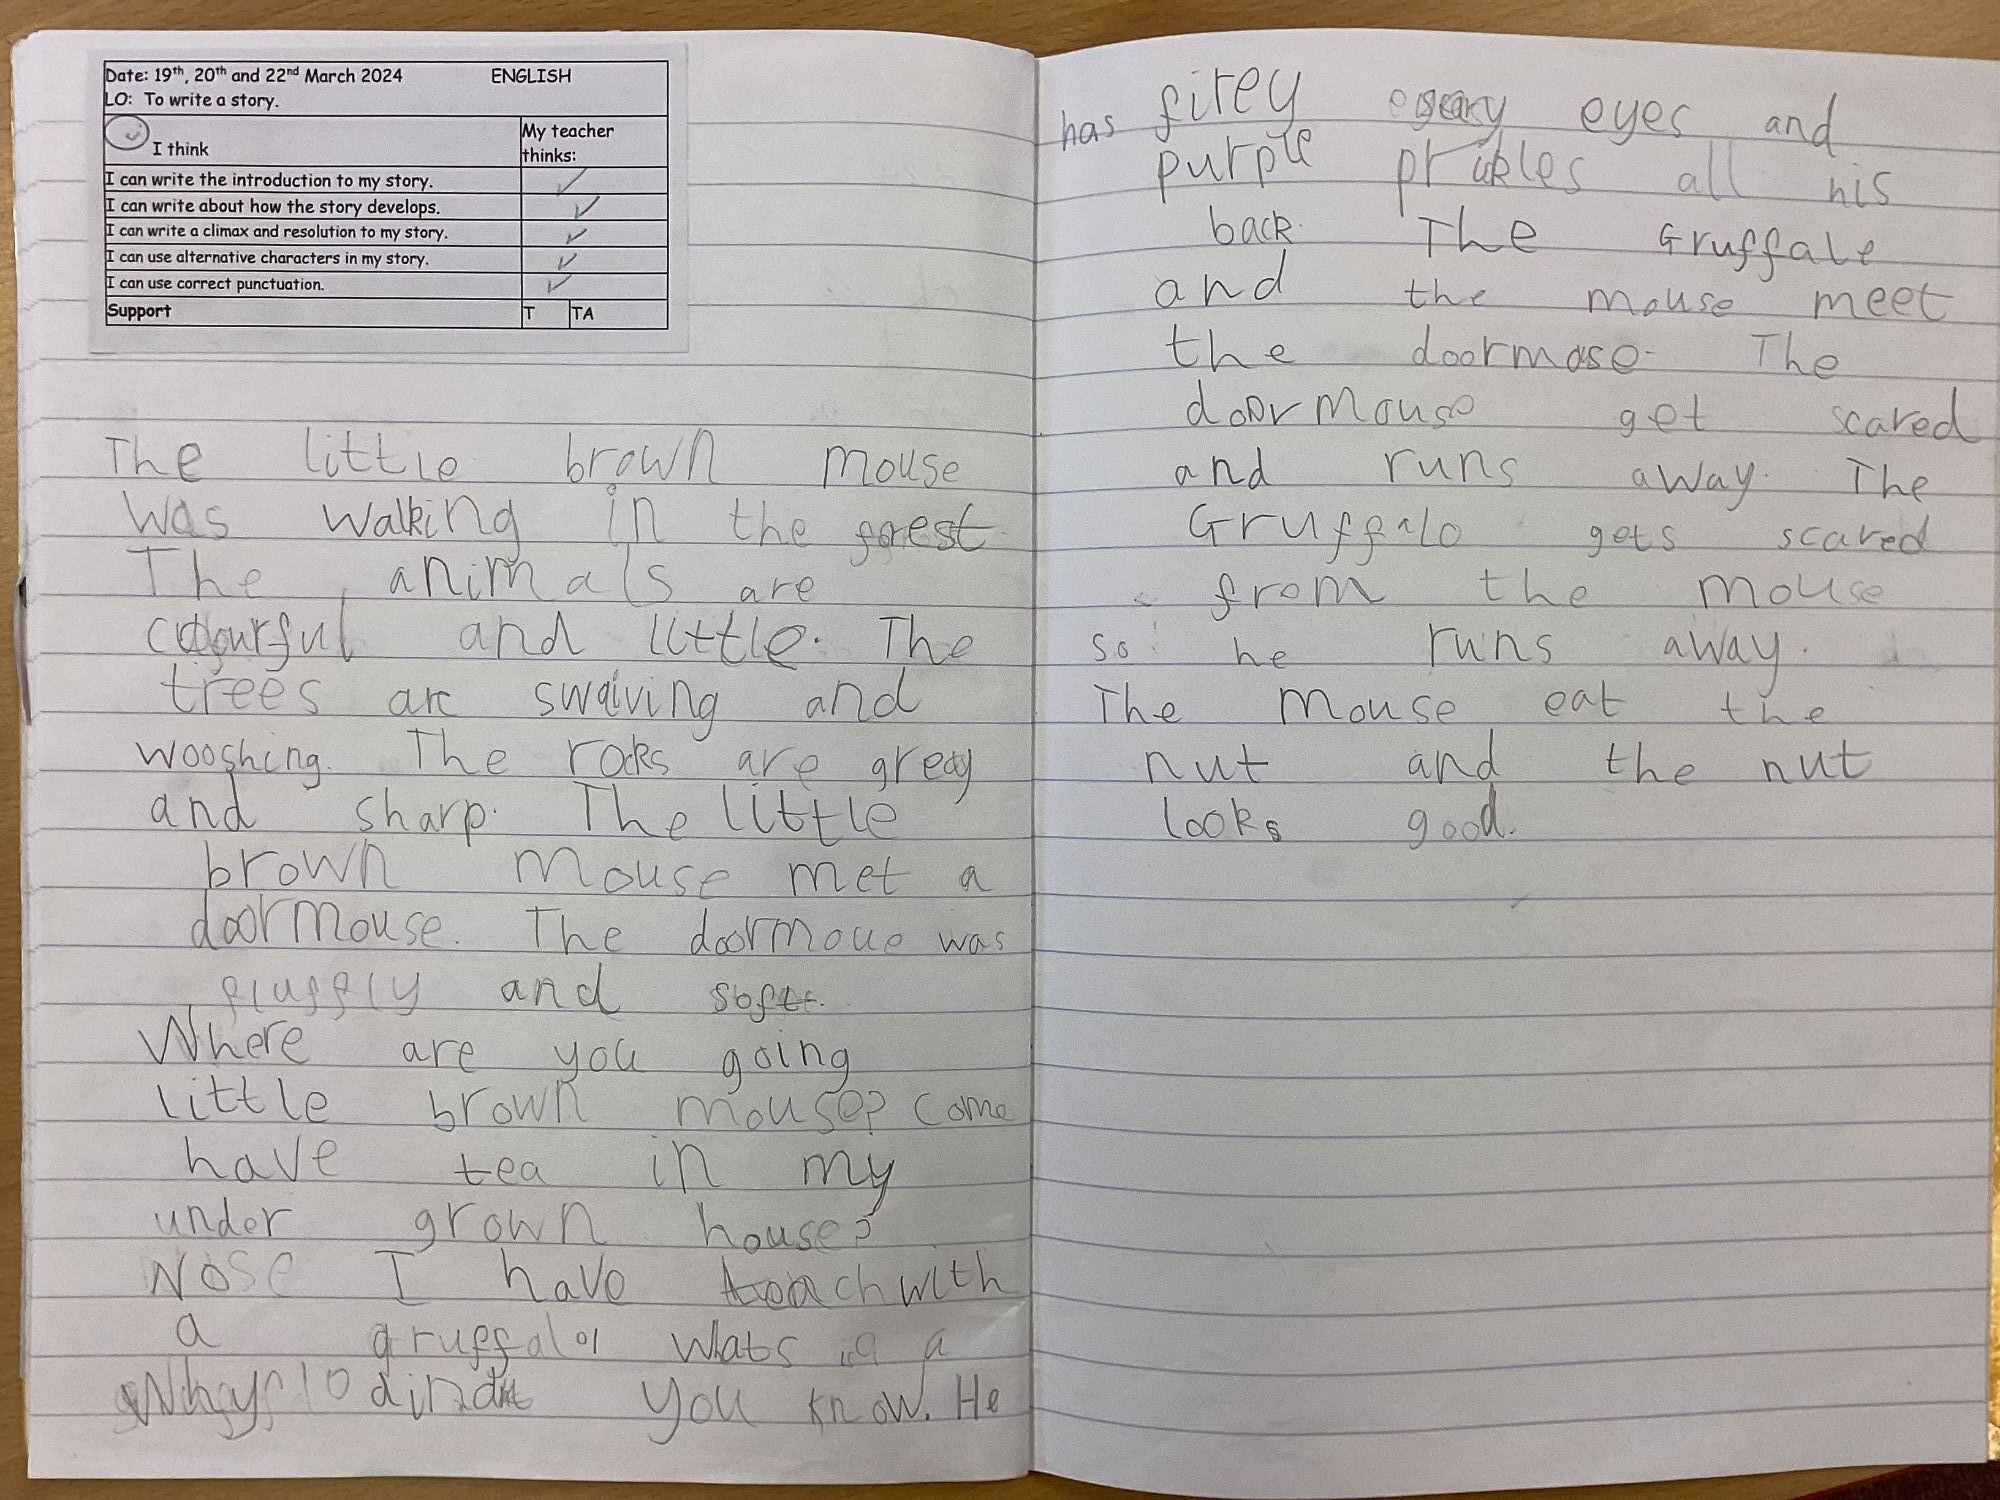 Date: 19th, 20th and 22nd March 2024 ENGLISH
LO: To write a story.
I think
My teacher thinks:
I can write the introduction to my story.
I can write about how the story develops.
I can write a climax and resolution to my story.
I can use alternative characters in my story.
I can use correct punctuation.
Support T TA
The little brown mouse
was walking in the forest
The animals are
colourful and little. The
trees are swaiving and
wooshing. The rocks are grey
and sharp. The little
brown mouse met a
doormouse. The doormoue was
fluffly and soft.
Where are you going
little brown mouse? Come
have tea in my
under grown house?
Nose I have with
a gruffalo! Wats a
dindt you know. He
has firey eyes and
purple prickles all his
back. The Gruffale
and the mouse meet
the doormose. The
doormouse get scared
and runs away. The
Gruffalo gets scared
from the mouse
so he runs away.
The mouse eat the
nut and the nut
looks good.